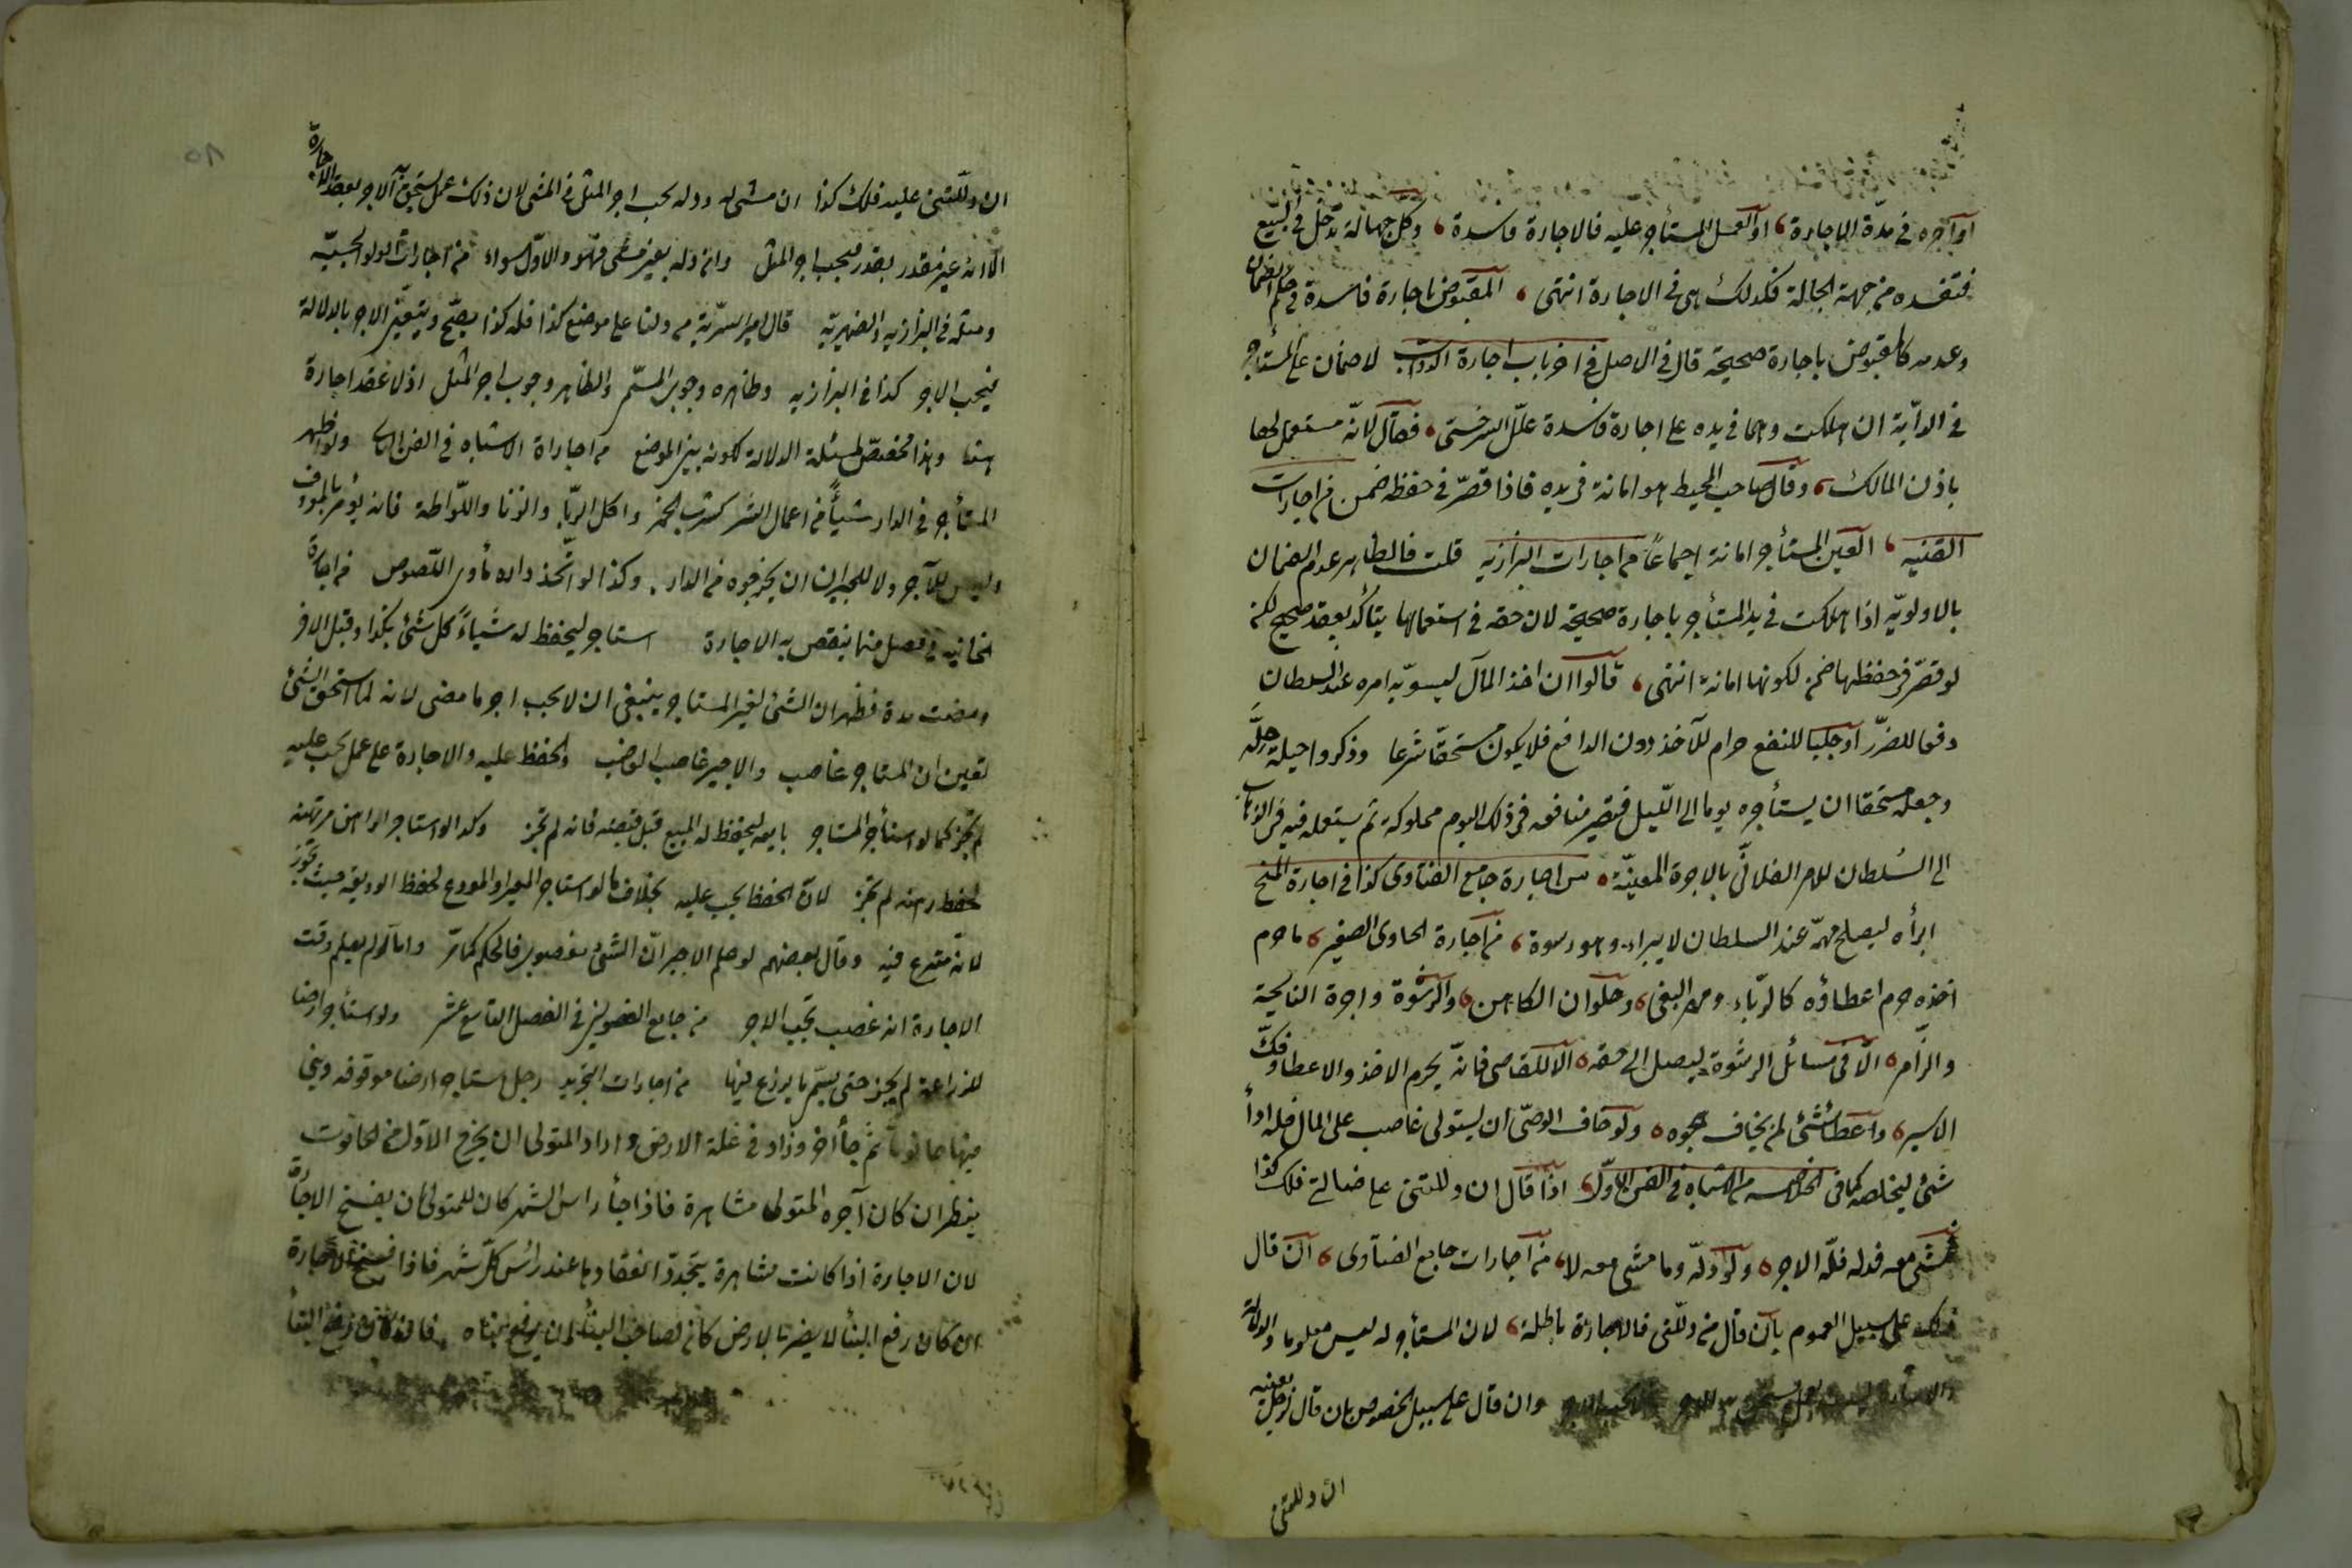 او آجره في مدّة الاجارة او العمل المستأجر عليه فالاجارة فاسدة وكل جهالة تدخل في البيع
فتفسده من جهة الجهالة فكذلك هي في الاجارة انتهى المقبوض اجارة فاسدة في حكم الضمان
وعدمه كالمقبوض باجارة صحيحة قال في الاصل في اخر باب اجارة الدواب لا ضمان على المستأجر
في الدابّة ان هلكت وهي في يده على اجارة فاسدة علّل السرخسي فقال لانّه مستعمل لها
باذن المالك وقال صاحب المحيط هو امانة في يده فاذا قصّر في حفظه ضمن من اجارات
القنيه العين المستأجر امانة اجماعًا من اجارات البزازيه قلت فالظاهر عدم الضمان
بالاولويّه اذا هلكت في يد المستأجر باجارة صحيحة لان حقه في استعمالها يتأكد بعقد صحيح لكن
لو قصّر في حفظها ضمن لكونها امانة انتهى قالوا ان اخذ المال ليسوّيه امره عند السلطان
دفعا للضرّ او جلبا للنفع حرام للآخذ دون الدافع فلا يكون مستحقّا شرعا وذكروا حيلة حلّه
وجعله مستحقا ان يستأجره يوما الى اللّيل فتصير منافعه في ذلك اليوم مملوكة ثم يستعمله فيه في الذهاب
الى السُلطان للامر الفلانيّ بالاجرة المعيّنة من اجارة جامع الفتاوى كذا في اجارة المنح
ابرأه ليصلح مهمّه عند السلطان لا يبراء وهو رسوة من اجارة الحاوى الصغير ما حرم
اخذه حرم اعطاؤه كالرّباء ومهر البغى وحلوان الكاهن والرشوة واجرة النايحة
والزّامر الّا في مسائل الرشوة ليصل الى حقه الا للقاصى فانّه يحرم الاخذ والاعطا وفكّ
الاسير واعطا شئ لمن يخاف هجوه ولو خاف الوصّى ان يستولى غاصب على المال فله اداأ
شئ ليخلصه كما في الخلاصه من الاشباه في الفن الاوّل اذا قال ان دللتنى على ضالتى فلك كذا
فمشى معه فدله فلّه الاجر ولو دلّه وما مشى معه لا من اجارات جامع الفتاوى ان قال
ذلك على سبيل العموم بان قال من دلّنى فالاجارة باطلة لان المستأجر له ليس معلوما والدلالة
والاشارة ليست بعمل يستحق به الاجر فلا يجب الاجر وان قال على سبيل الخصوص بان قال لرجل بعينه
ان دللتنى
ان دللتنى عليه فلك كذا ان مشى له ودله يجب اجر المثل في المشى لان ذلك عمل يستحق به الاجر بعقد الاجارة
الا انه غير مقدر بقدر فيجب اجر المثل وان دله بغير مشى فهو والاوّل سواء من اجارات الولوالجيّه
ومثله في البزازيه والظهيريّه قال امير السريّة من دلنا على موضع كذا فله كذا يصحّ ويتعيّن الاجر بالدلالة
فيجب الاجر كذا في البزازيه وظاهره وجوب المسمّى والظاهر وجوب اجر المثل اذ لا عقد اجارة
هنا وهذا مخصّص لمسئلة الدلالة لكونه بيّن الموضع من اجاراة الاشباه في الفن الثانى ولو اظهر
المستأجر في الدار شيأً من اعمال الشر كشرب الخمر واكل الرّبا والزنا واللّواطة فانه يؤمر بالمعروف
وليس للآجر ولا للجيران ان يخرجوه من الدار وكذا لو اتّخذ داره مأوى اللّصوص من اجارة
الخانيه في فصل فيما ينقص به الاجارة استاجر ليحفظ له شياءً كل شئ بكذا وقبل الاخر
ومضت مدة فظهر ان الشئ لغير المستاجر ينبغى ان لا يجب اجر ما مضى لانه لما استحق الشئ
تعين ان المستاجر غاصب والاجير غاصب الغاصب والحفظ عليه والاجارة على عمل يجب عليه
لم تجز كما لو استأجر المستاجر بايعه ليحفظ له المبيع قبل قبضه فانه لم تجز وكذا لو استاجر الراهن مرتهنه
لحفظ رهنه لم تجز لانّ الحفظ يجب عليه بخلاف ما لو استاجر المعير او المودع لحفظ الوديعه حيث تجوز
لانّه متبرع فيه وقال بعضهم لو علم الاجير انّ الشئ مغصوب فالحكم كما مرّ واما لو لم يعلم وقت
الاجارة انه غصب يجب الاجر من جامع الفصولين في الفصل التاسع عشر ولو استأجر ارضا
للزراعة لم يجز حتى يسمّى ما يزرع فيها من اجارات التجريد رجل استاجر ارضا موقوفه وبنى
فيها حانوتا ثمّ جأ آخر وزاد في غلة الارض واراد المتولى ان يخرج الاوّل من الحانوت
ينظر ان كان آجره المتولى مشاهرة فاذا جأ راس الشهر كان للمتولى ان يفسخ الاجارة
لان الاجارة اذا كانت مشاهرة يتجدّد انعقادها عند رأس كلّ شهر فاذا فسخ الاجارة
ان كان رفع البنأ لا يضر بالارض كان لصاحب البنأ ان يرفع بناه